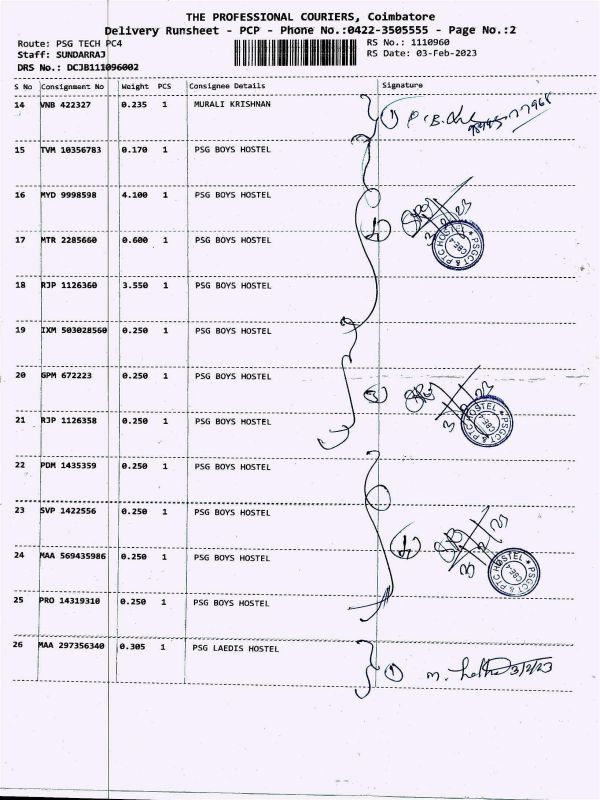 THE PROFESSIONAL COURIERS, Coimbatore
Delivery Runsheet - PCP - Phone No.:0422-3505555 - Page No.:2
Route: PSG TECH PC4 RS No.: 1110960
Staff: SUNDARRAJ RS Date: 03-Feb-2023
DRS No.: DCJB111096002
S No Consignment No Weight PCS Consignee Details Signature
14 VNB 422327 0.235 1 MURALI KRISHNAN 1
15 TVM 10356783 0.170 1 PSG BOYS HOSTEL
16 MYD 9998598 4.100 1 PSG BOYS HOSTEL
17 MTR 2285660 0.600 1 PSG BOYS HOSTEL
PSGCT & PTC HOSTEL * CBE-4
18 RJP 1126360 3.550 1 PSG BOYS HOSTEL
19 IXM 503028560 0.250 1 PSG BOYS HOSTEL
20 GPM 672223 0.250 1 PSG BOYS HOSTEL
21 RJP 1126358 0.250 1 PSG BOYS HOSTEL
PSGCT & PTC HOSTEL * CBE-4
22 PDM 1435359 0.250 1 PSG BOYS HOSTEL
23 SVP 1422556 0.250 1 PSG BOYS HOSTEL
24 MAA 569435986 0.250 1 PSG BOYS HOSTEL
PSGCT & PTC HOSTEL * CBE-4
25 PRO 14319310 0.250 1 PSG BOYS HOSTEL
26 MAA 297356340 0.305 1 PSG LAEDIS HOSTEL 1 3/2/23